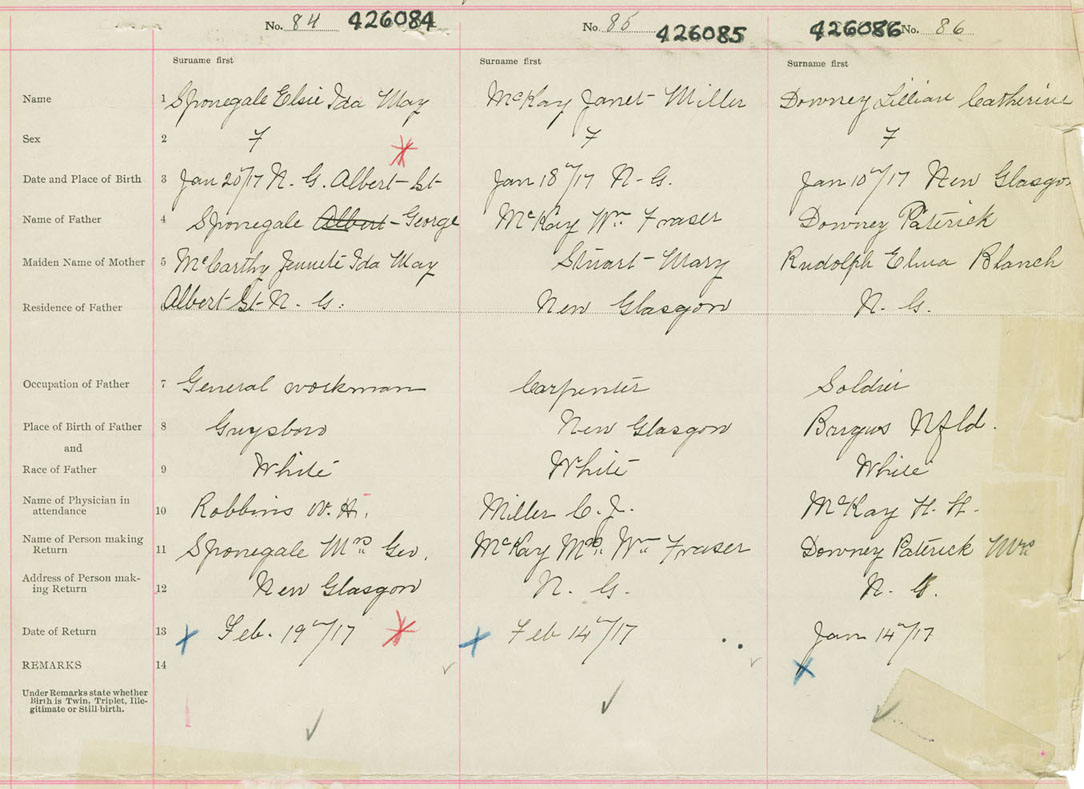 No. 84 426084 No. 85 426085 426086 No. 86
Surname first Surname first Surname first
Name 1 Sponegale Elsie Ida May McKay Janet Miller Downey Lillian Catherine
Sex 2 F F F
Date and Place of Birth 3 Jan 20/17 N. G. Albert St Jan 18/17 N. G. Jan 10/17 New Glasgo
Name of Father 4 Sponegale Albert George McKay Wm Fraser Downey Paterick
Maiden Name of Mother 5 McCarthy Jennete Ida May Stuart Mary Rudolph Elma Blanch
Residence of Father Albert St N. G. New Glasgow N. G.
Occupation of Father 7 General workman Carpenter Soldier
Place of Birth of Father 8 Guysboro New Glasgow Brigus Nfld.
and
Race of Father 9 White White White
Name of Physician in
attendance 10 Robbins W. H. Miller C. J. McKay H. H.
Name of Person making
Return 11 Sponegale Mrs Geo. McKay Mrs Wm Fraser Downey Paterick Mrs
Address of Person mak-
ing Return 12 New Glasgow N. G. N. G.
Date of Return 13 Feb. 19/17 Feb 14/17 Jan 14/17
REMARKS 14
Under Remarks state whether
Birth is Twin, Triplet, Ille-
gitimate or Still-birth.